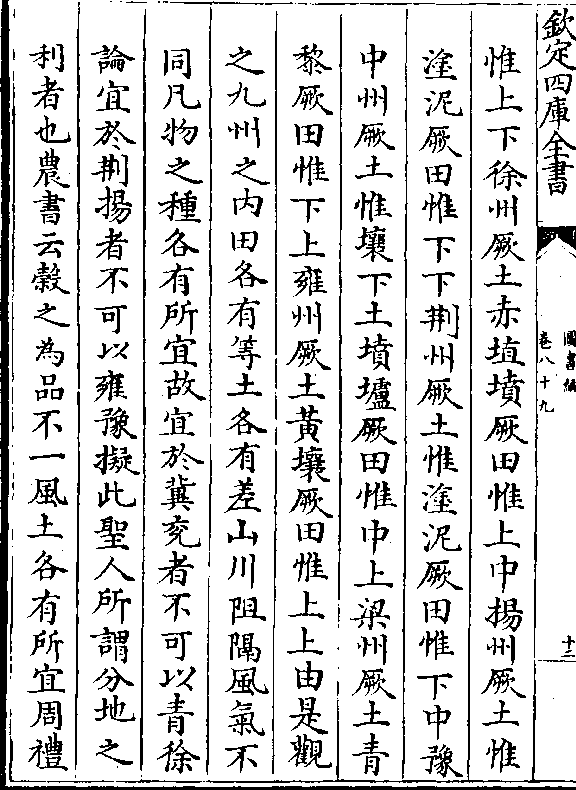 欽定四庫全書
圖書編
卷八十九
十三
惟上下徐州厥土赤埴墳厥田惟上中揚州厥土惟
塗泥厥田惟下下荆州厥土惟塗泥厥田惟下中豫
中州厥土惟壤下土墳壚厥田惟中上梁州厥土青
黎厥田惟下上雍州厥土黃壤厥田惟上上由是觀
之九州之内田各有等土各有差山川阻隔風氣不
同凡物之種各有所宜故宜於冀兖者不可以青徐
論宜於荆揚者不可以雍豫擬此聖人所謂分地之
利者也農書云穀之為品不一風土各有所宜周禮